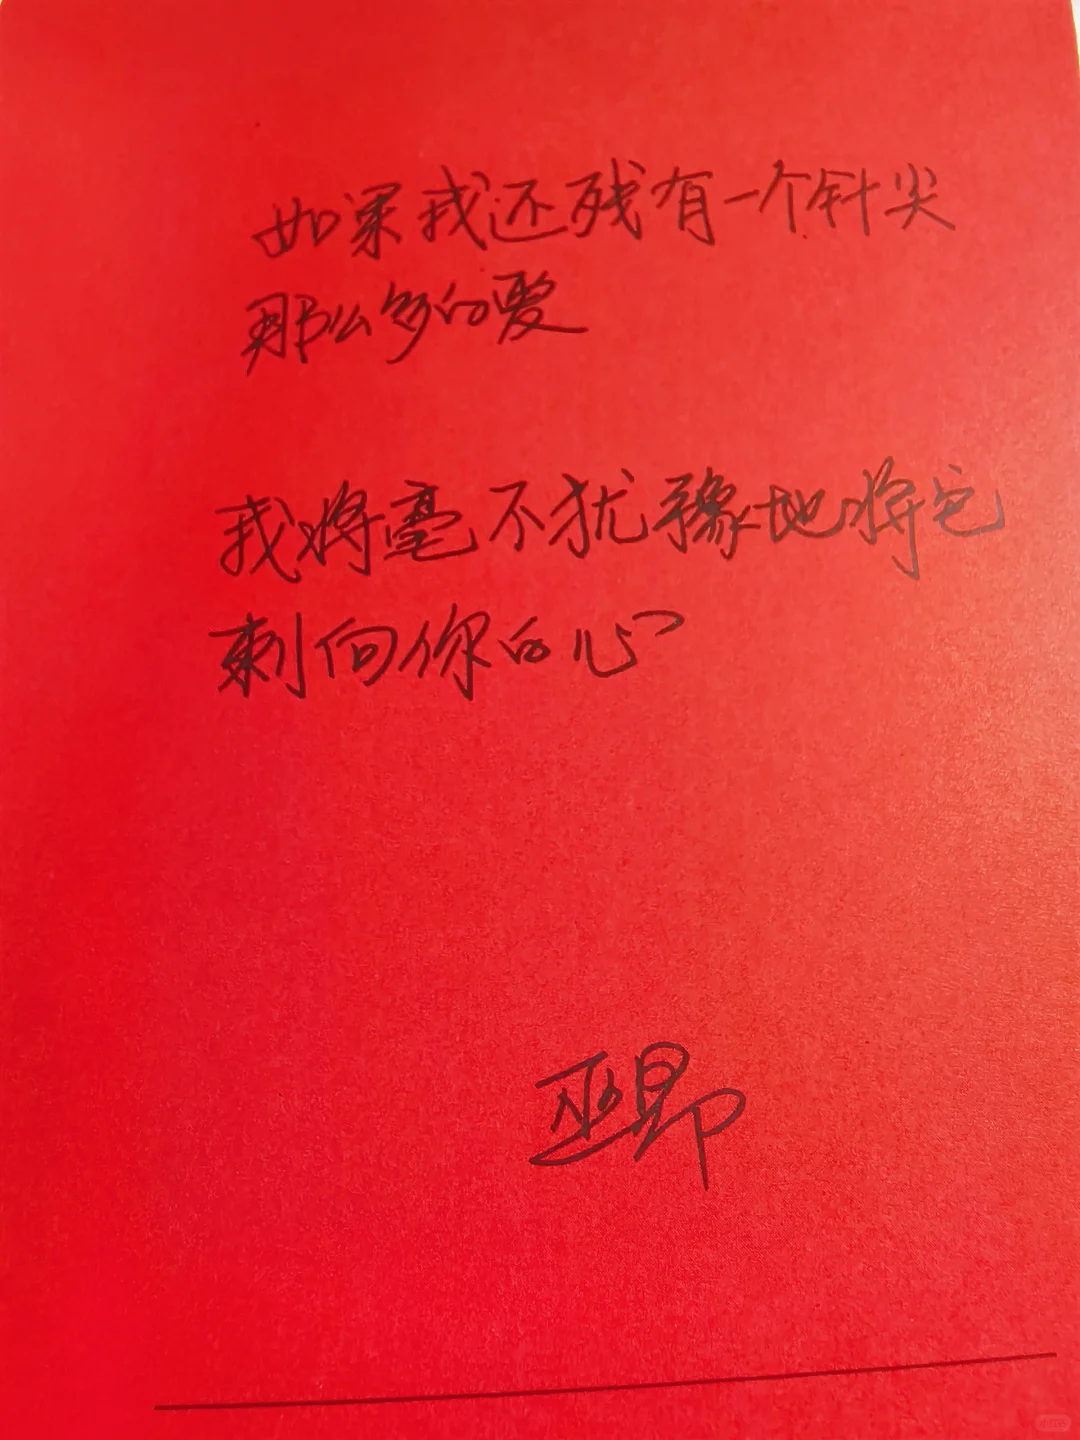 如果我还残有一个针尖
那么多的爱
我将毫不犹豫地将它
刺向你的心
巫昂